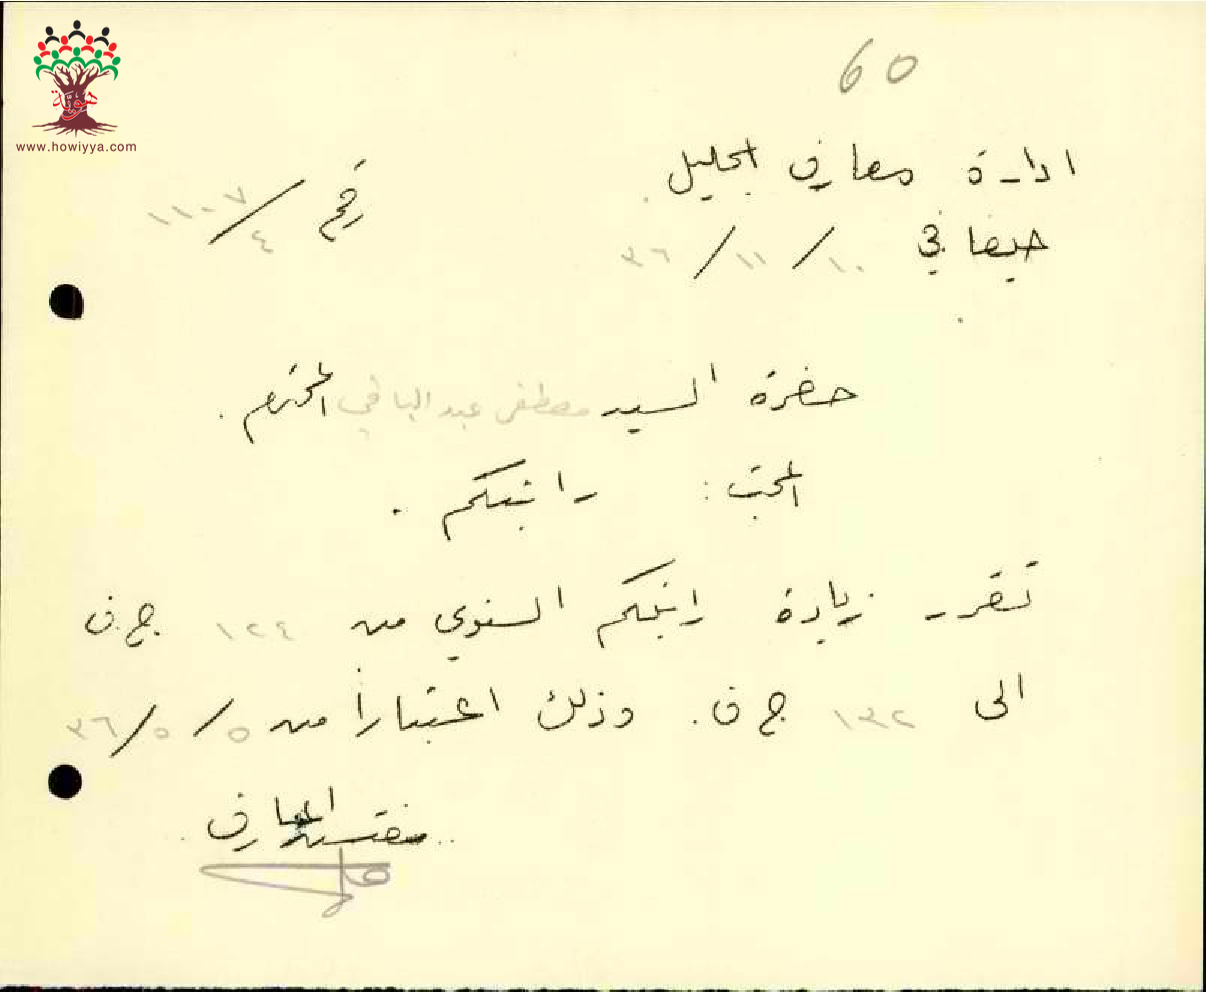 هوية
www.howiyya.com
60
ادارة معارف الجليل
حيفا في ١٠ / ١١ / ٣٦
رقم ٤ / ١١٠٧
حضرة السيد مصطفى عبد الباقي المحترم.
المبحث: راتبكم.
تقرر زيادة راتبكم السنوي من ١٢٤ ج.ف
الى ١٣٢ ج ف. وذلك اعتبارا من ٥ / ٥ / ٣٦
مفتش المعارف